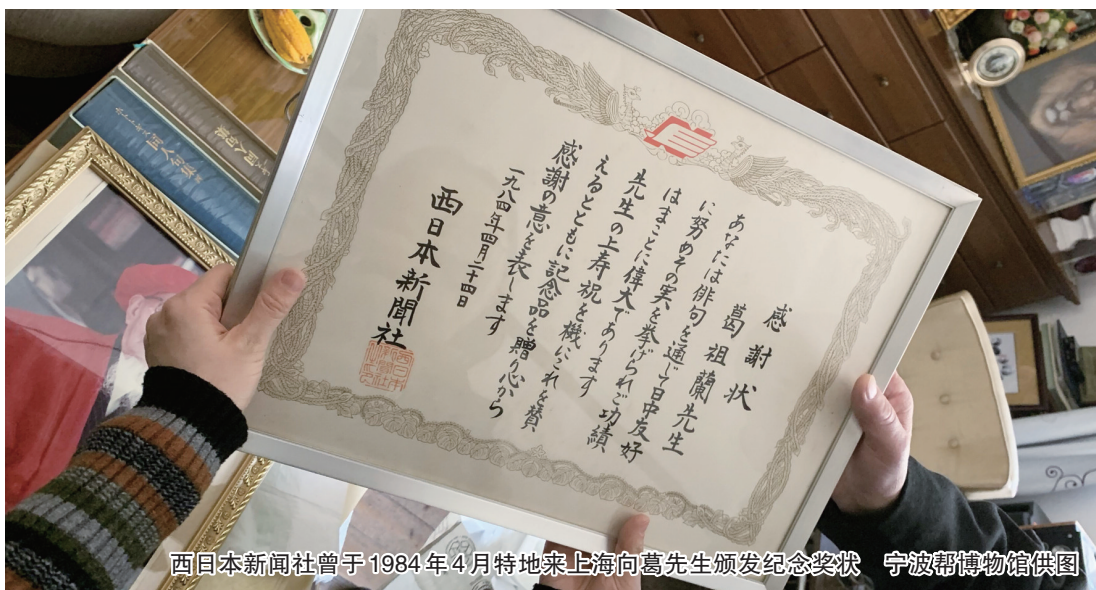 感謝状
葛祖蘭先生
あなたは俳句を通じて日中友好
に努めその実を挙げられご功績
はまことに偉大であります
先生の上寿祝を機にこれを賛
えるとともに記念品を贈り心から
感謝の意を表します
一九八四年四月二十四日
西日本新聞社
西日本新闻社曾于1984年4月特地来上海向葛先生颁发纪念奖状 宁波帮博物馆供图